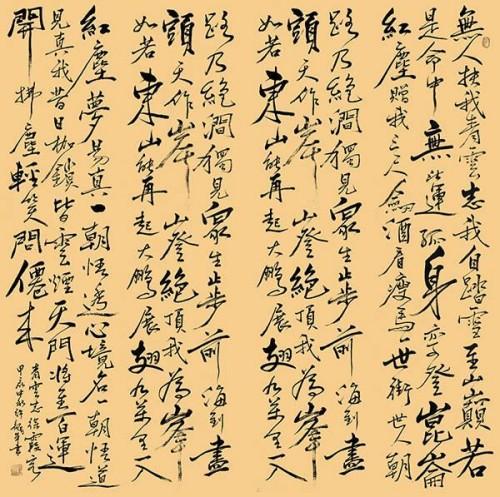 無人扶我青雲志我自踏雪至山巔若
是命中無此運孤身亦登崑崙
紅塵贈我三尺劍酒肴瘦馬一世街世人朝
路乃絕澗獨見眾生止步前海到盡
頭天作岸山登絕頂我為峯
如若東山能再起大鵬展翅九萬里入
路乃絕澗獨見眾生止步前海到盡
頭天作岸山登絕頂我為峯
如若東山能再起大鵬展翅九萬里入
紅塵夢易真一朝悟透心境名一朝悟道
見真我昔日枷鎖皆雲煙天門將至百運
開拂塵輕笑問僊來
青雲志徐霞客
甲辰中秋許書